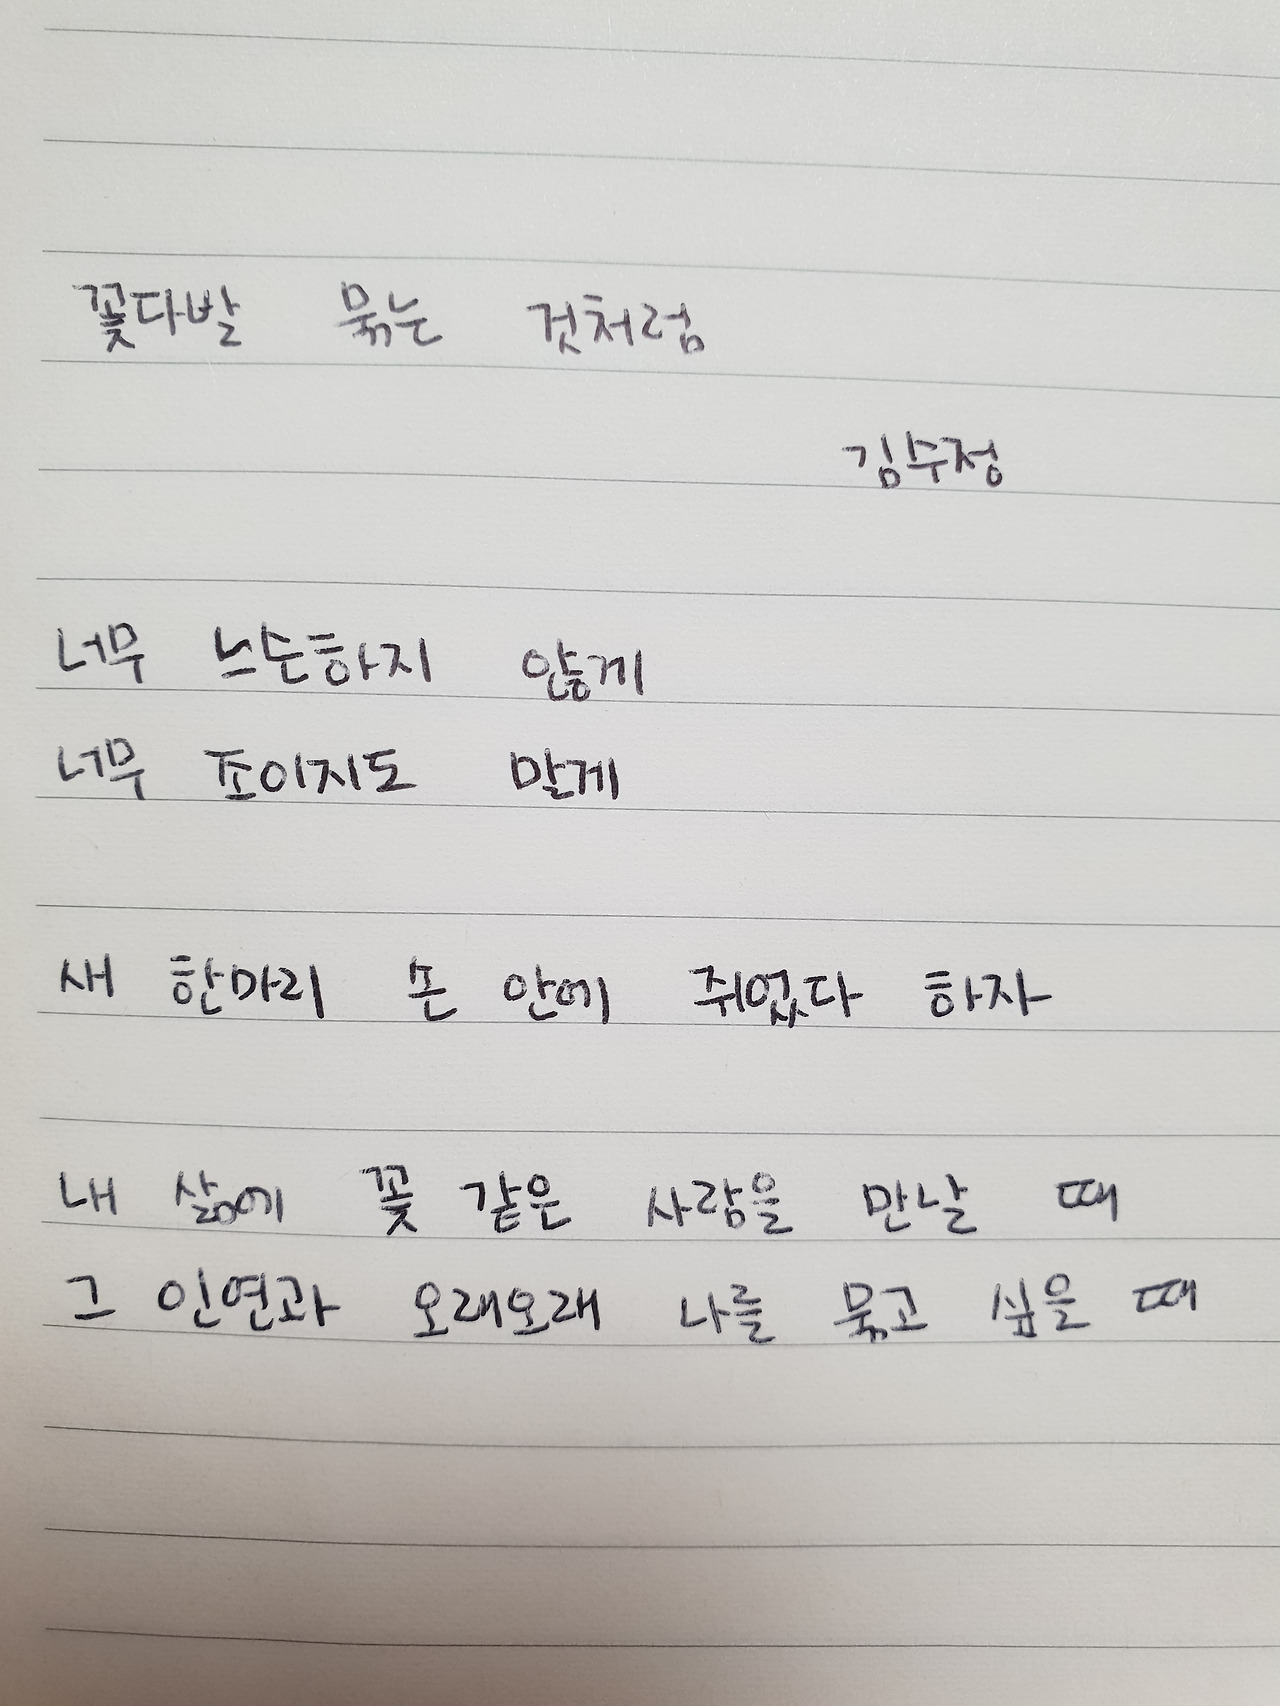 꽃다발 묶는 것처럼
김수정
너무 느슨하지 않게
너무 조이지도 말게
새 한마리 손 안에 쥐었다 하자
내 삶에 꽃 같은 사람을 만날 때
그 인연과 오래오래 나를 묶고 싶을 때